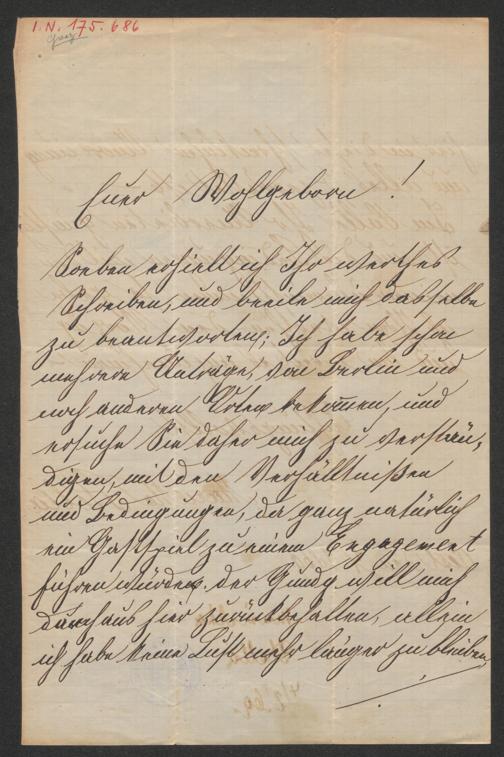 I. N. 175.686
Graz
Euer Wohlgeborn!
Soeben erhielt ich Ihr werthes
Schreiben, und beeile mich dasselbe
zu beantworten; Ich habe schon
mehrere Anträge, von Berlin und
noch anderen Orten bekommen, und
ersuche Sie daher mich zu verstän-
digen, mit den Verhältnißen
und Bedingungen, da ganz natürlich
ein Gastspiel zu einem Engagement
führen würde. der Gundy will mich
durchaus hier zurückbehalten, allein
ich habe keine Lust mehr länger zu bleiben,